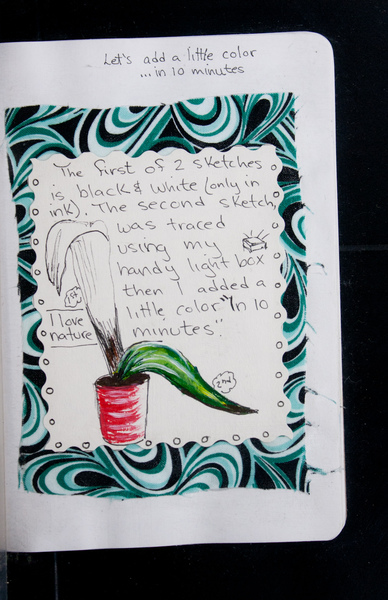 Let's add a little color
...in 10 minutes
The first of 2 sketches
is black & white (only in
ink). The second sketch,
was traced
using my
handy light box
then I added a
little color "In 10
minutes".
1st
I love
nature
2nd